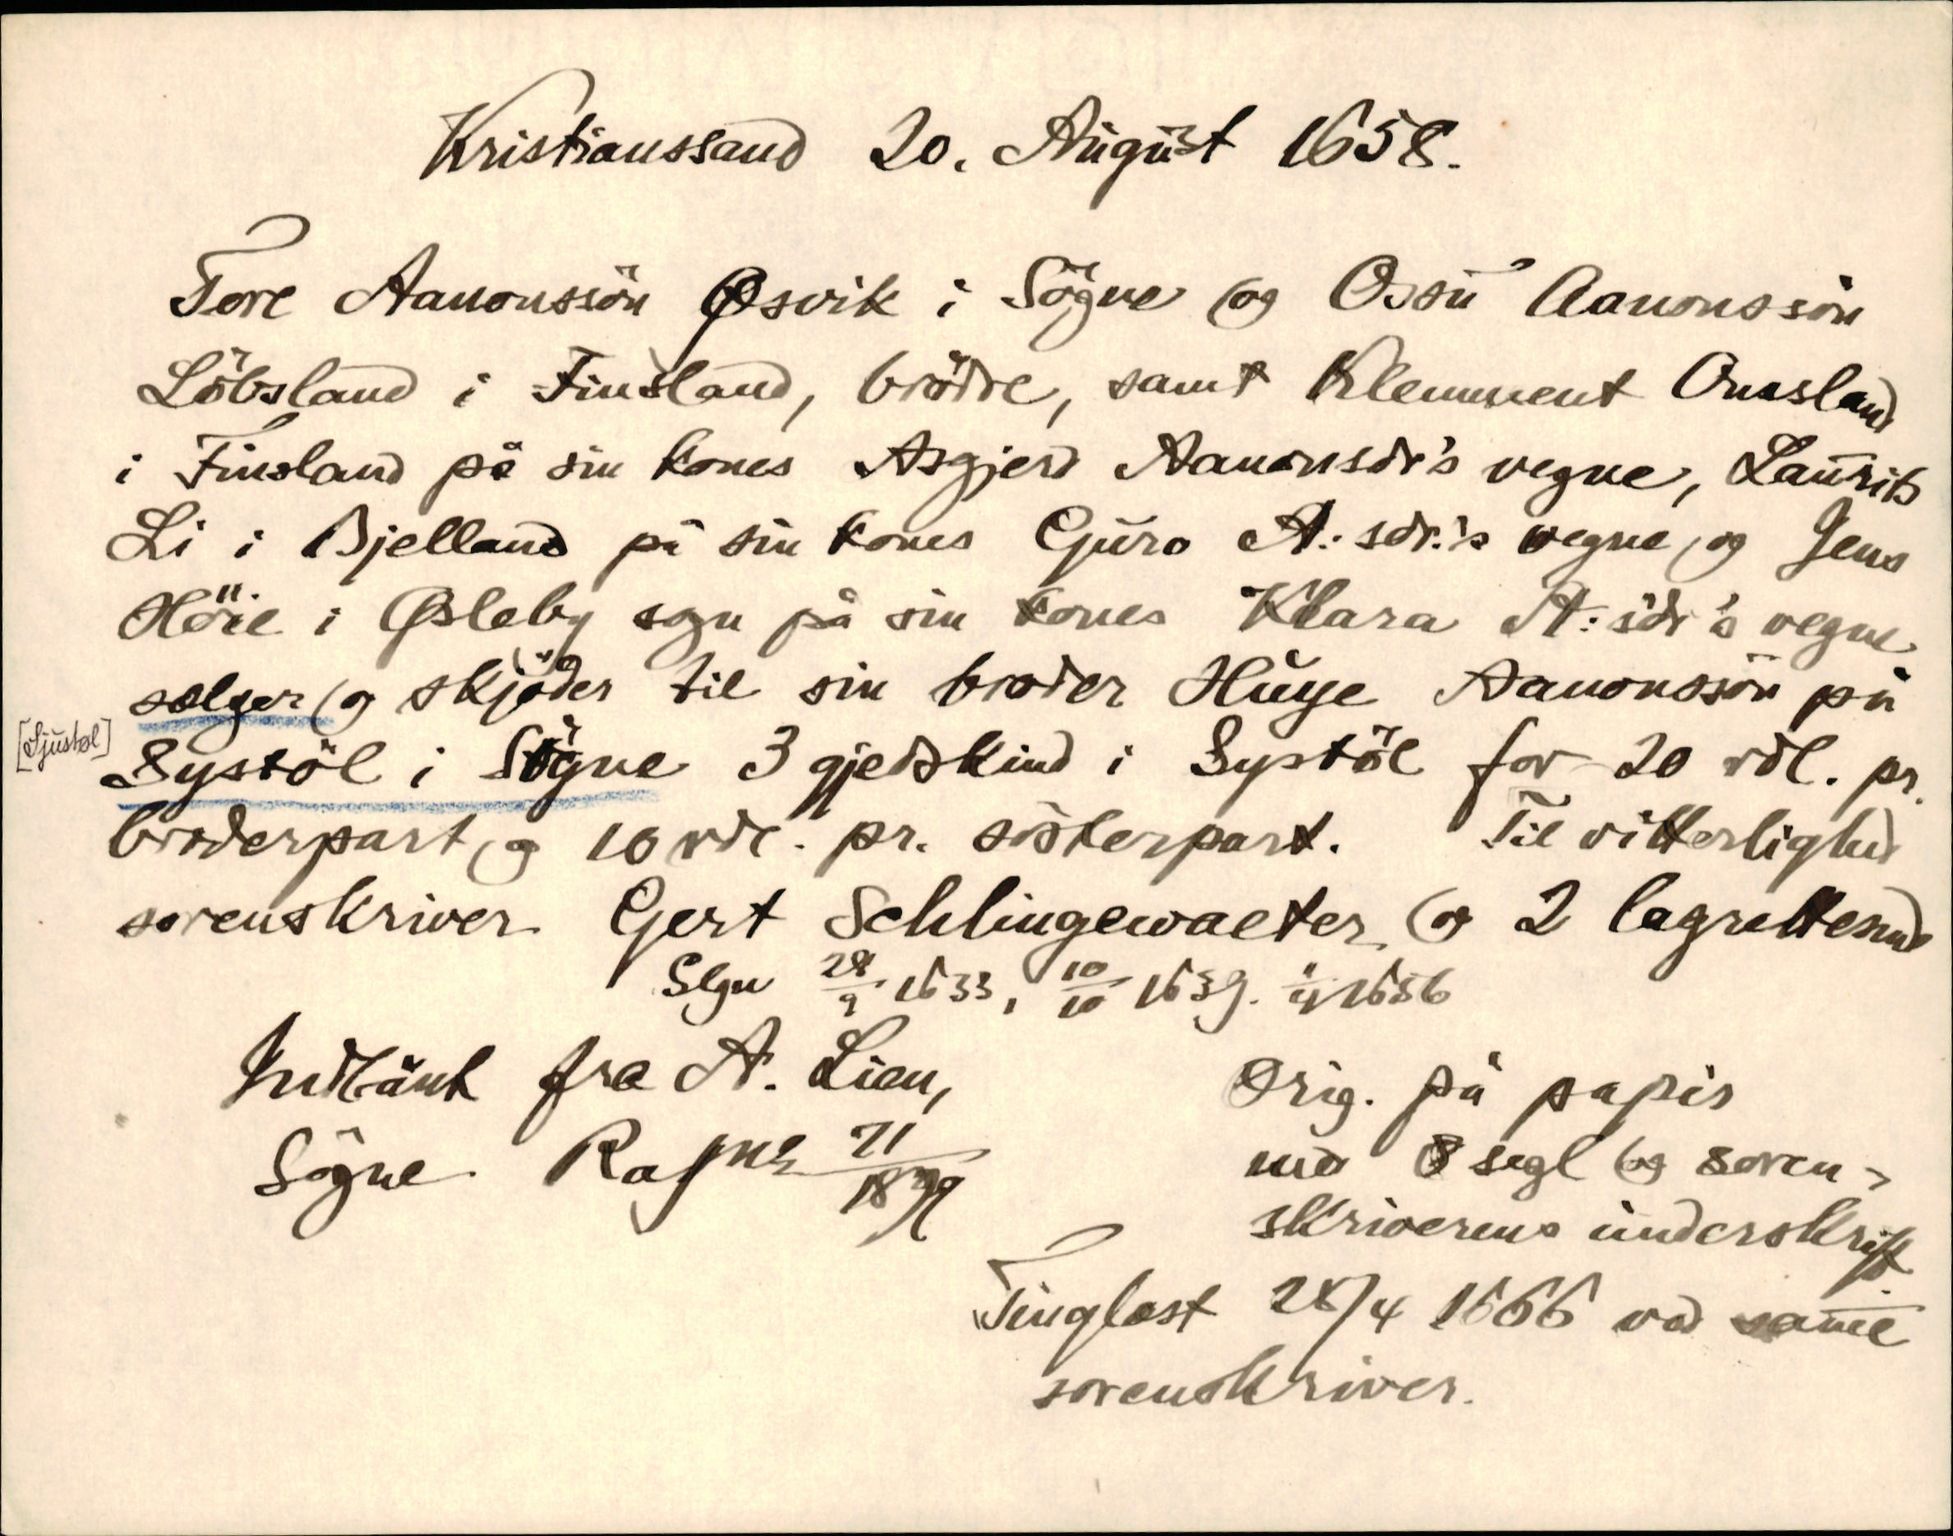 Kristianssand 20. August 1658.
Tore Aanonssön Øsvik i Sögne og Ossu Aanonssön
Löbsland i Finsland, brödre, samt Klemment Omsland
i Finsland på sin kones Asgjerd Aanonsdr's vegne, Laurits
Li i Bjelland på sin kones Guro A:sdr.'s vegne og Jens
Höie i Øsleby sogn på sin kones Klara A:sdr's vegne
sælger og skjöder til sin broder Huge Aanonssön på
[Sjustøl]
Systöl i Sögne 3 gjedskind i Systöl for 20 rdl. pr.
broderpart og 10 rdl. pr. sösterpart. Til vitterlighed
sorenskriver Gert Schlingewaeter og 2 lagrettesmd
Slgn 28/9 1633, 10/10 1639. 1656
Indlånt fra A. Lien,
Sögne 21/7 1899
Orig. på papir
med 8 segl og soren-
skriverens underskrift
Tinglæst 28/4 1666 ved samme
sorenskriver.